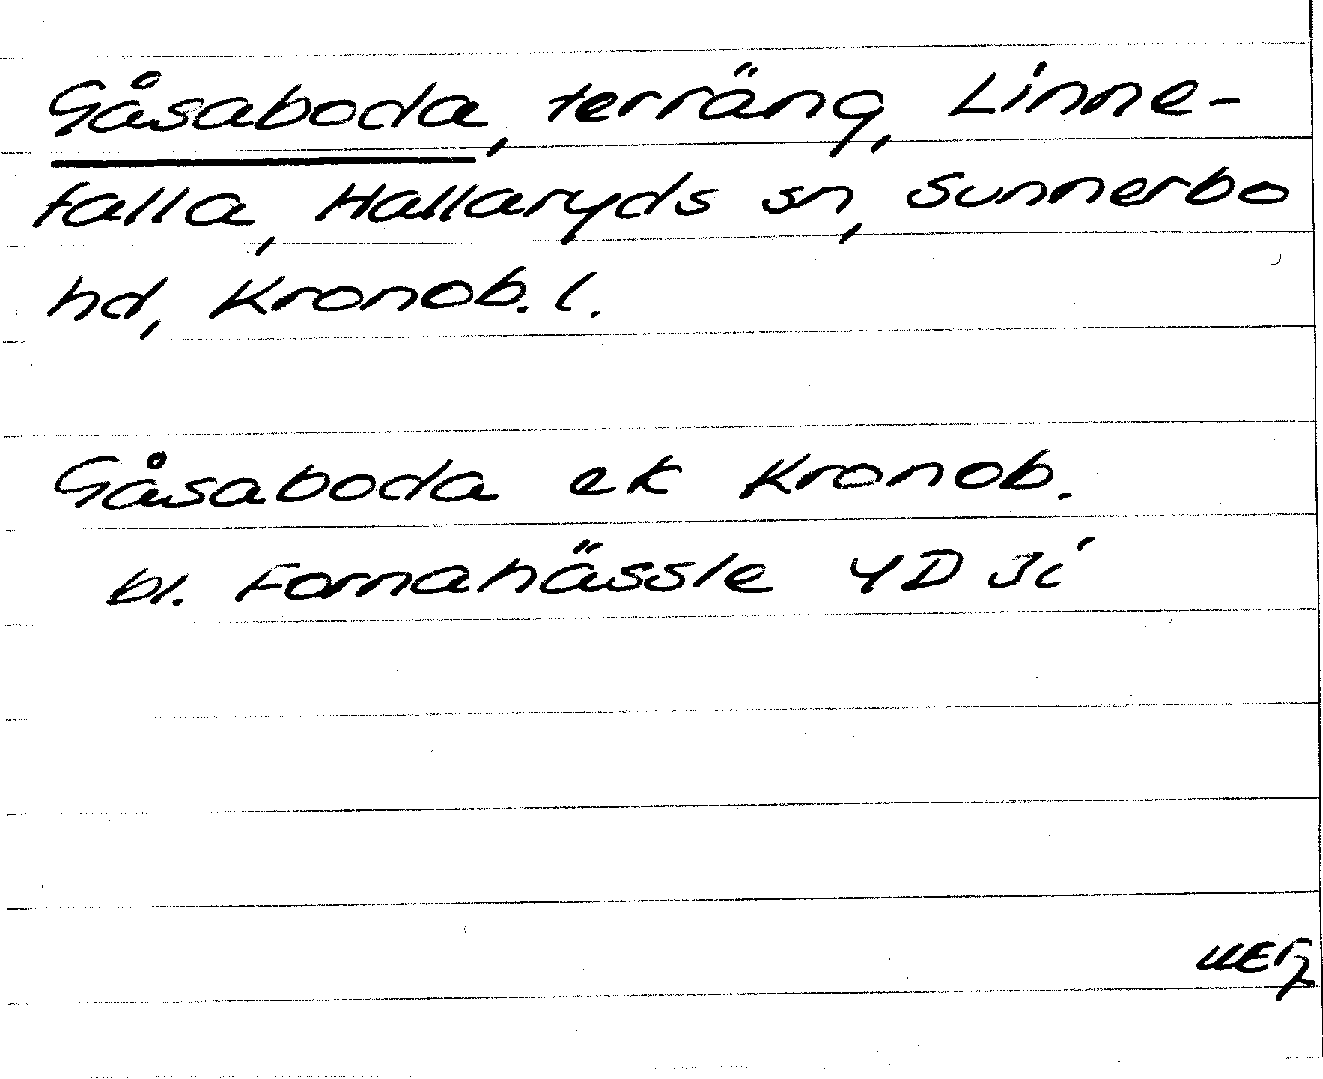 Gåsaboda, terräng, Linne-
falla, Hallaryds sn, Sunnerbo
hd, Kronob. l.
Gåsaboda ek Kronob.
bl. Fornahässle 4D 3i